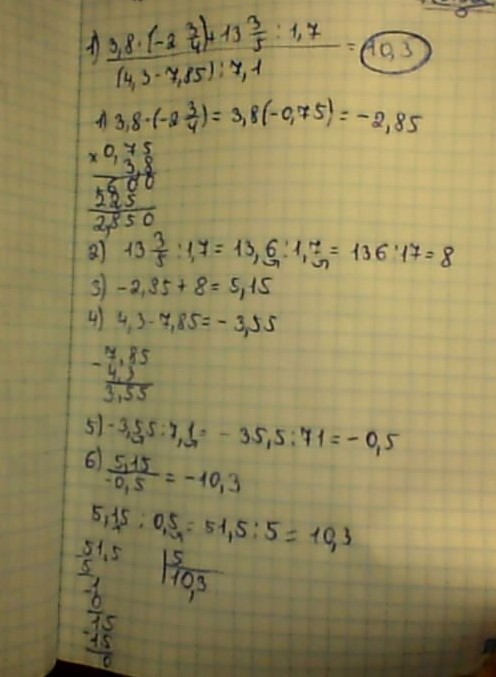 1) 3,8·(-2 3/4)+13 3/5 : 1,7 = 10,3
(4,3-7,85):7,1
1) 3,8·(-2 3/4) = 3,8(-0,75) = -2,85
× 0,75
3,8
600
225
2,850
2) 13 3/5 :1,7 = 13,6:1,7 = 136:17 = 8
3) -2,85 + 8 = 5,15
4) 4,3-7,85 = -3,55
- 7,85
4,3
3,55
5) -3,55:7,1 = -35,5:71 = -0,5
6) 5,15/-0,5 = -10,3
5,15 : 0,5 = 51,5:5 = 10,3
51,5 | 5
5 10,3
-1
0
-15
15
0